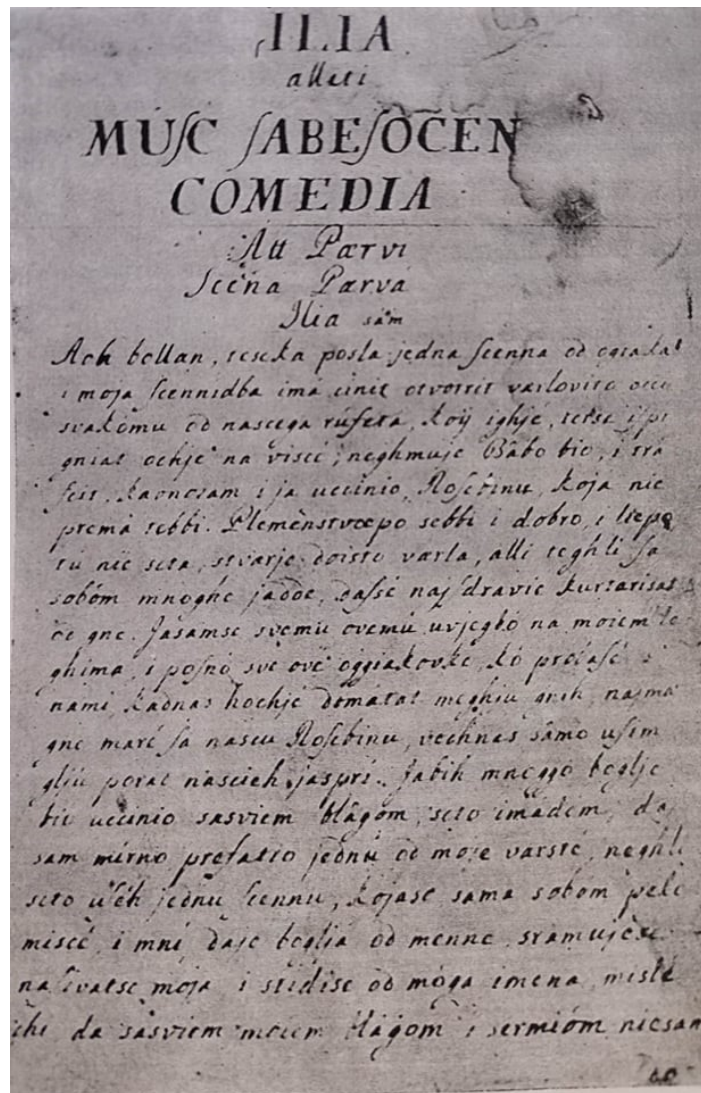 ILIA
alliti
MUſC ſABEſOCEN
COMEDIA
Att Parvi
Scèna Parva
Ilia sam
Ach bollan, teseka posla jedna ſcenna od ogiaka!
i moja ſcennidba imá cinit otvorrit varlovito
svakomu od nascega rúfeta, koÿ ighje, tetse
gniat ochje na viscé; neghmuje Bábo bio, i
kaonosam i ja uccinio, Roſebinu, koja nie
prema sebbi. Plemènstvo po sebbi i dobro, i liepo
tu nie seta, stvarje doisto varla, alli teghli ſa
sobóm mnoghe jadde, daſsé najſdravie kurtarisat
od gne. Jasamse svemu ovemu uvjegbó na moiem
ghima, i posnó sve ové oggiakovke, kó
nami, kadnas hochjé domatat meghiu gnih, najma
gne maré ſa nascu Roſebinu, vechnas sámo uſim
gliú porat nascieh jaspri. Jabih mnoggo boglje
bio uccinio sasviem blágom, scto imadem, da
sam mirno prefatio jednú od moje varsté, neghli
scto uſéh jednu ſcennu, kojase sama sobóm
misce, i mni daje boglia od menne, sramujese
naſvatse moja i stidise od móga imena, misle
chi da sasviem moiem blágom i sermióm niesam